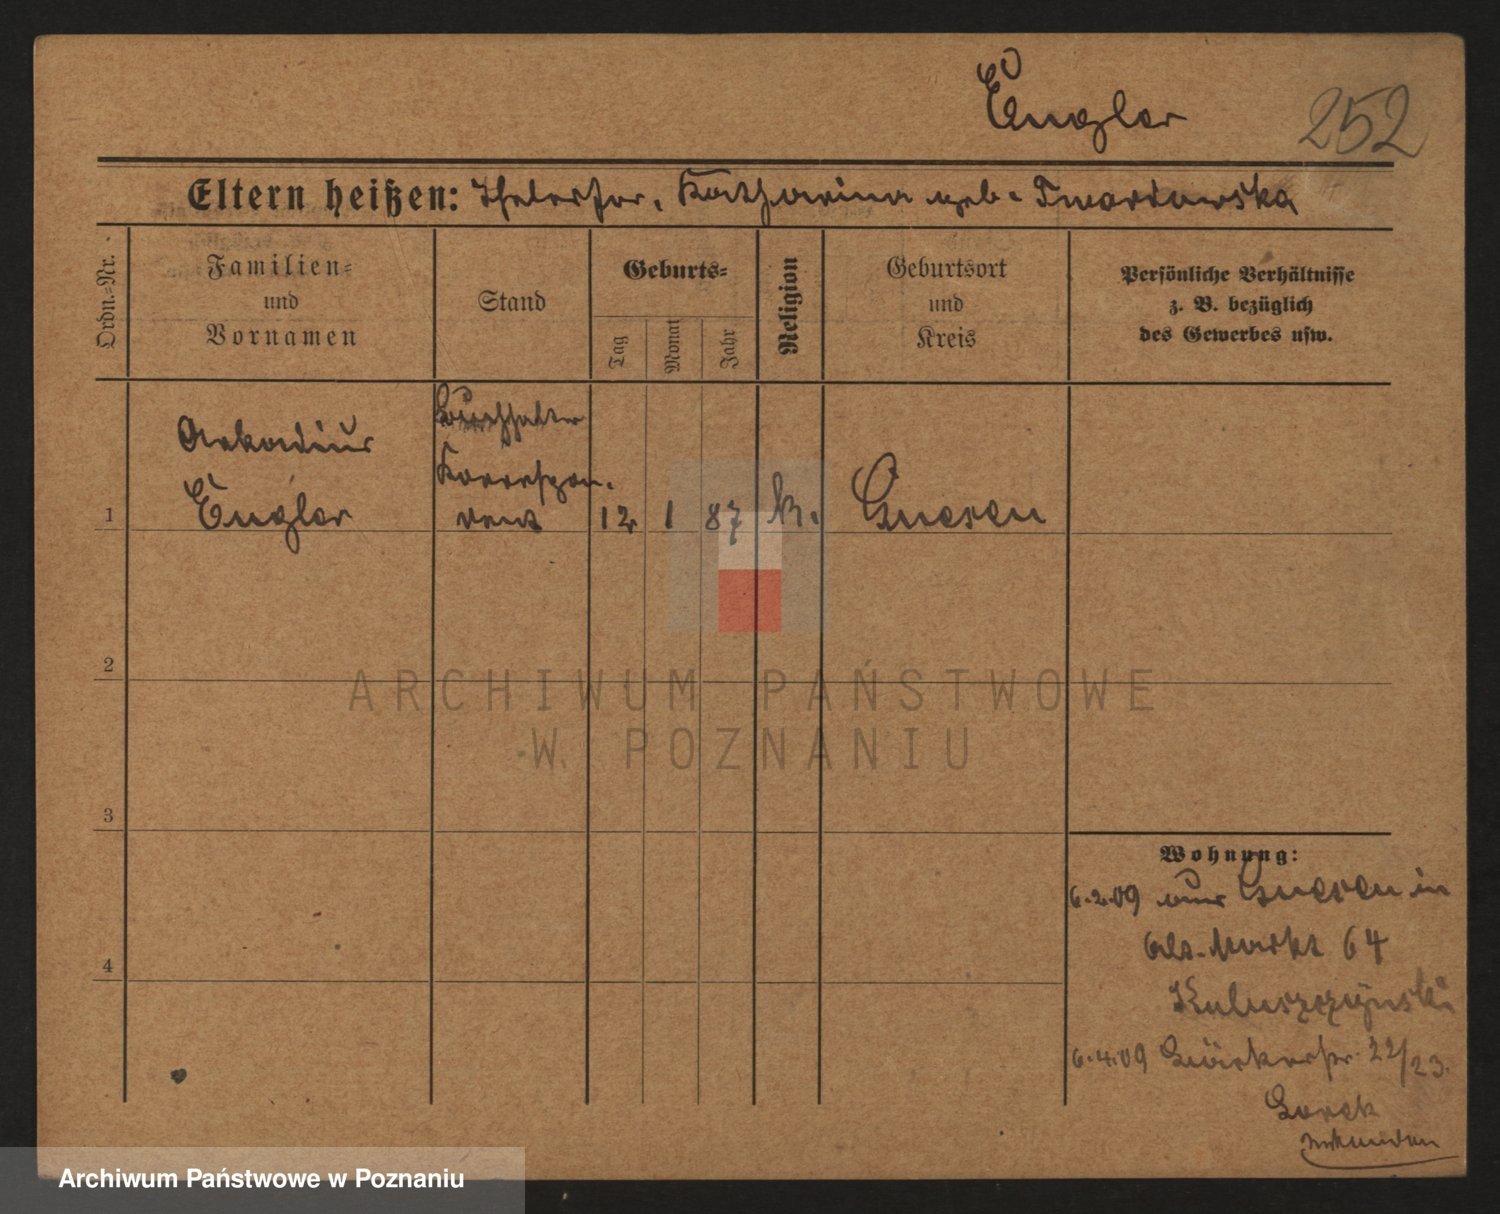 Engler 252
Eltern heißen: Katharina geb. Twardowska
Ordn.=Nr.
Familien=
und
Vornamen
Stand
Geburts=
Tag
Monat
Jahr
Religion
Geburtsort
und
Kreis
Persönliche Verhältnisse
z. B. bezüglich
des Gewerbes usw.
Arkadius
Engler
Buchhalter
Korrespon.
dent
1 12 1 87 k. Gnesen
2
3
4
Wohnung:
6.2.09 aus Gnesen in
Alt. Markt 64
6.4.09 Bäckerstr. 22/23.
ARCHIWUM PAŃSTWOWE
W POZNANIU
Archiwum Państwowe w Poznaniu